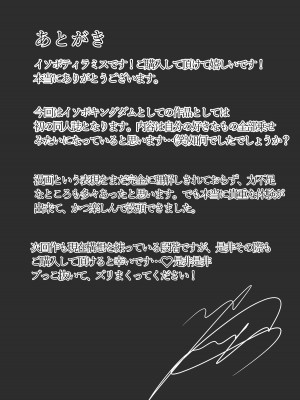 あとがき
イソポティラミスです！ご購入して頂けて嬉しいです！
本当にありがとうございます。
今回はイソポキングダムとしての作品としては
初の同人誌となります。内容は自分の好きなもの全部乗せ
みたいになっていると思います…(笑)如何でしたでしょうか？
漫画という表現をまだ完全に理解しきれておらず、力不足
なところも多々あったと思います。でも本当に貴重な体験が
出来て、かつ楽しんで製作できました。
次回作も現在構想を練っている段階ですが、是非その際も
ご購入して頂けると幸いです…♡是非是非
ブっこ抜いて、ズリまくってください！